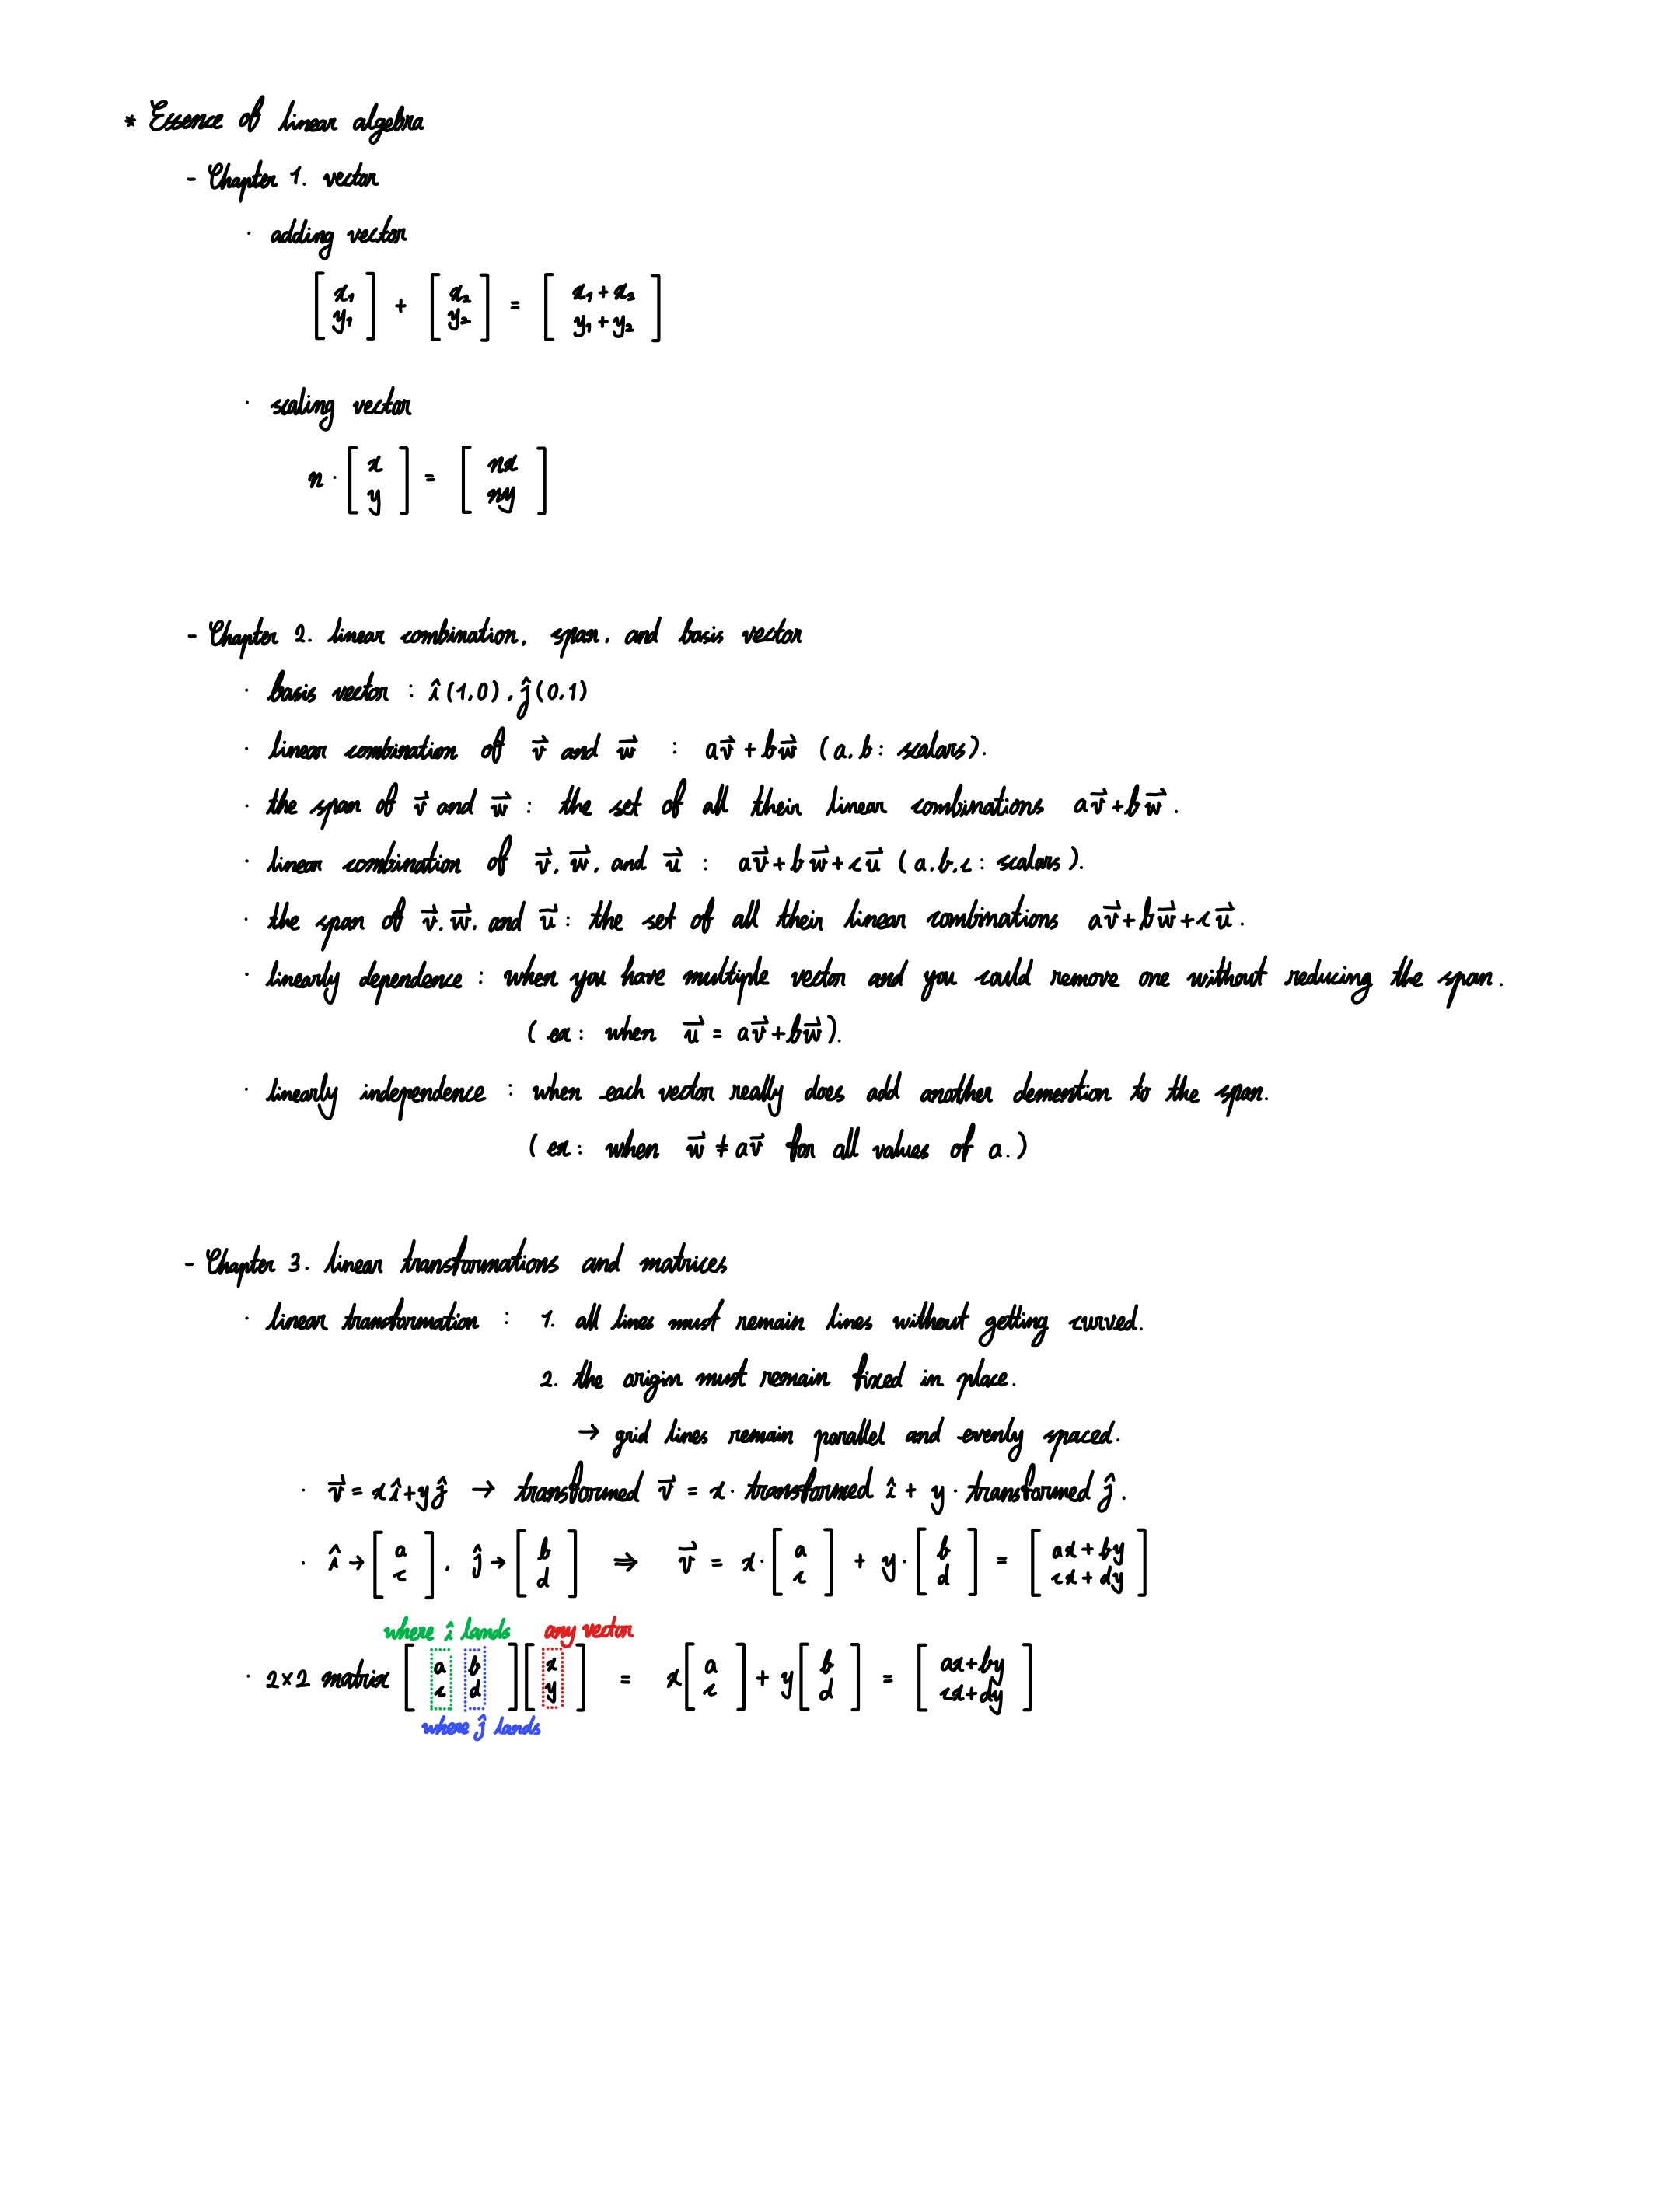 * Essence of linear algebra
- Chapter 1. vector
· adding vector
[x₁ y₁] + [x₂ y₂] = [x₁+x₂ y₁+y₂]
· scaling vector
n · [x y] = [nx ny]
- Chapter 2. linear combination, span, and basis vector
· basis vector : î(1,0), ĵ(0,1)
· linear combination of v⃗ and w⃗ : av⃗ + bw⃗ (a, b : scalars).
· the span of v⃗ and w⃗ : the set of all their linear combinations av⃗+bw⃗.
· linear combination of v⃗, w⃗, and u⃗ : av⃗+bw⃗+cu⃗ (a, b, c : scalars).
· the span of v⃗, w⃗, and u⃗ : the set of all their linear combinations av⃗+bw⃗+cu⃗.
· linearly dependence : when you have multiple vector and you could remove one without reducing the span.
(ex : when u⃗ = av⃗+bw⃗).
· linearly independence : when each vector really does add another demention to the span.
(ex : when w⃗ ≠ av⃗ for all values of a.)
- Chapter 3. linear transformations and matrices
· linear transformation : 1. all lines must remain lines without getting curved.
2. the origin must remain fixed in place.
→ grid lines remain parallel and evenly spaced.
· v⃗ = xî+yĵ → transformed v⃗ = x · transformed î + y · transformed ĵ.
· î → [a c], ĵ → [b d] ⇒ v⃗ = x · [a c] + y · [b d] = [ax+by cx+dy]
where î lands any vector
· 2×2 matrix [a b c d] [x y] = x [a c] + y [b d] = [ax+by cx+dy]
where ĵ lands